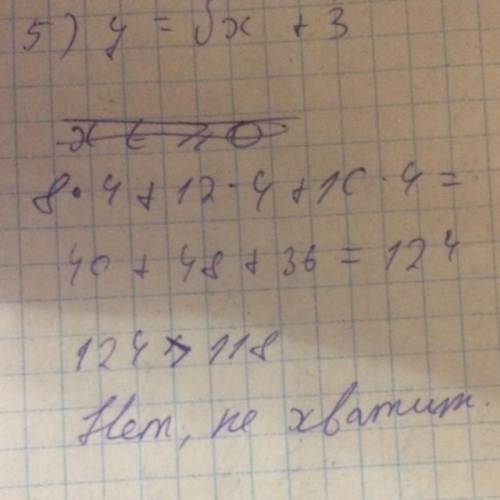 5) y = √x + 3
x ∈ ≥ 0
8·4 + 12·4 + 10·4 =
40 + 48 + 36 = 124
124 > 118
Нет, не хватит.